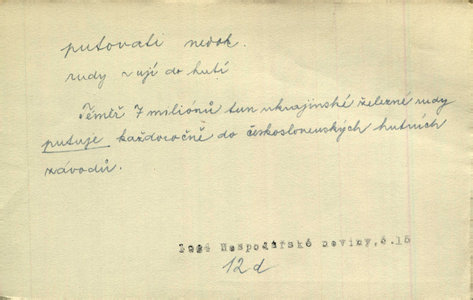 putovati nedok.
rudy ují do hutí
Téměř 7 miliónů tun ukrajinské železné rudy
putuje každoročně do československých hutních
závodů.
Hospodářské noviny, č.15
12d